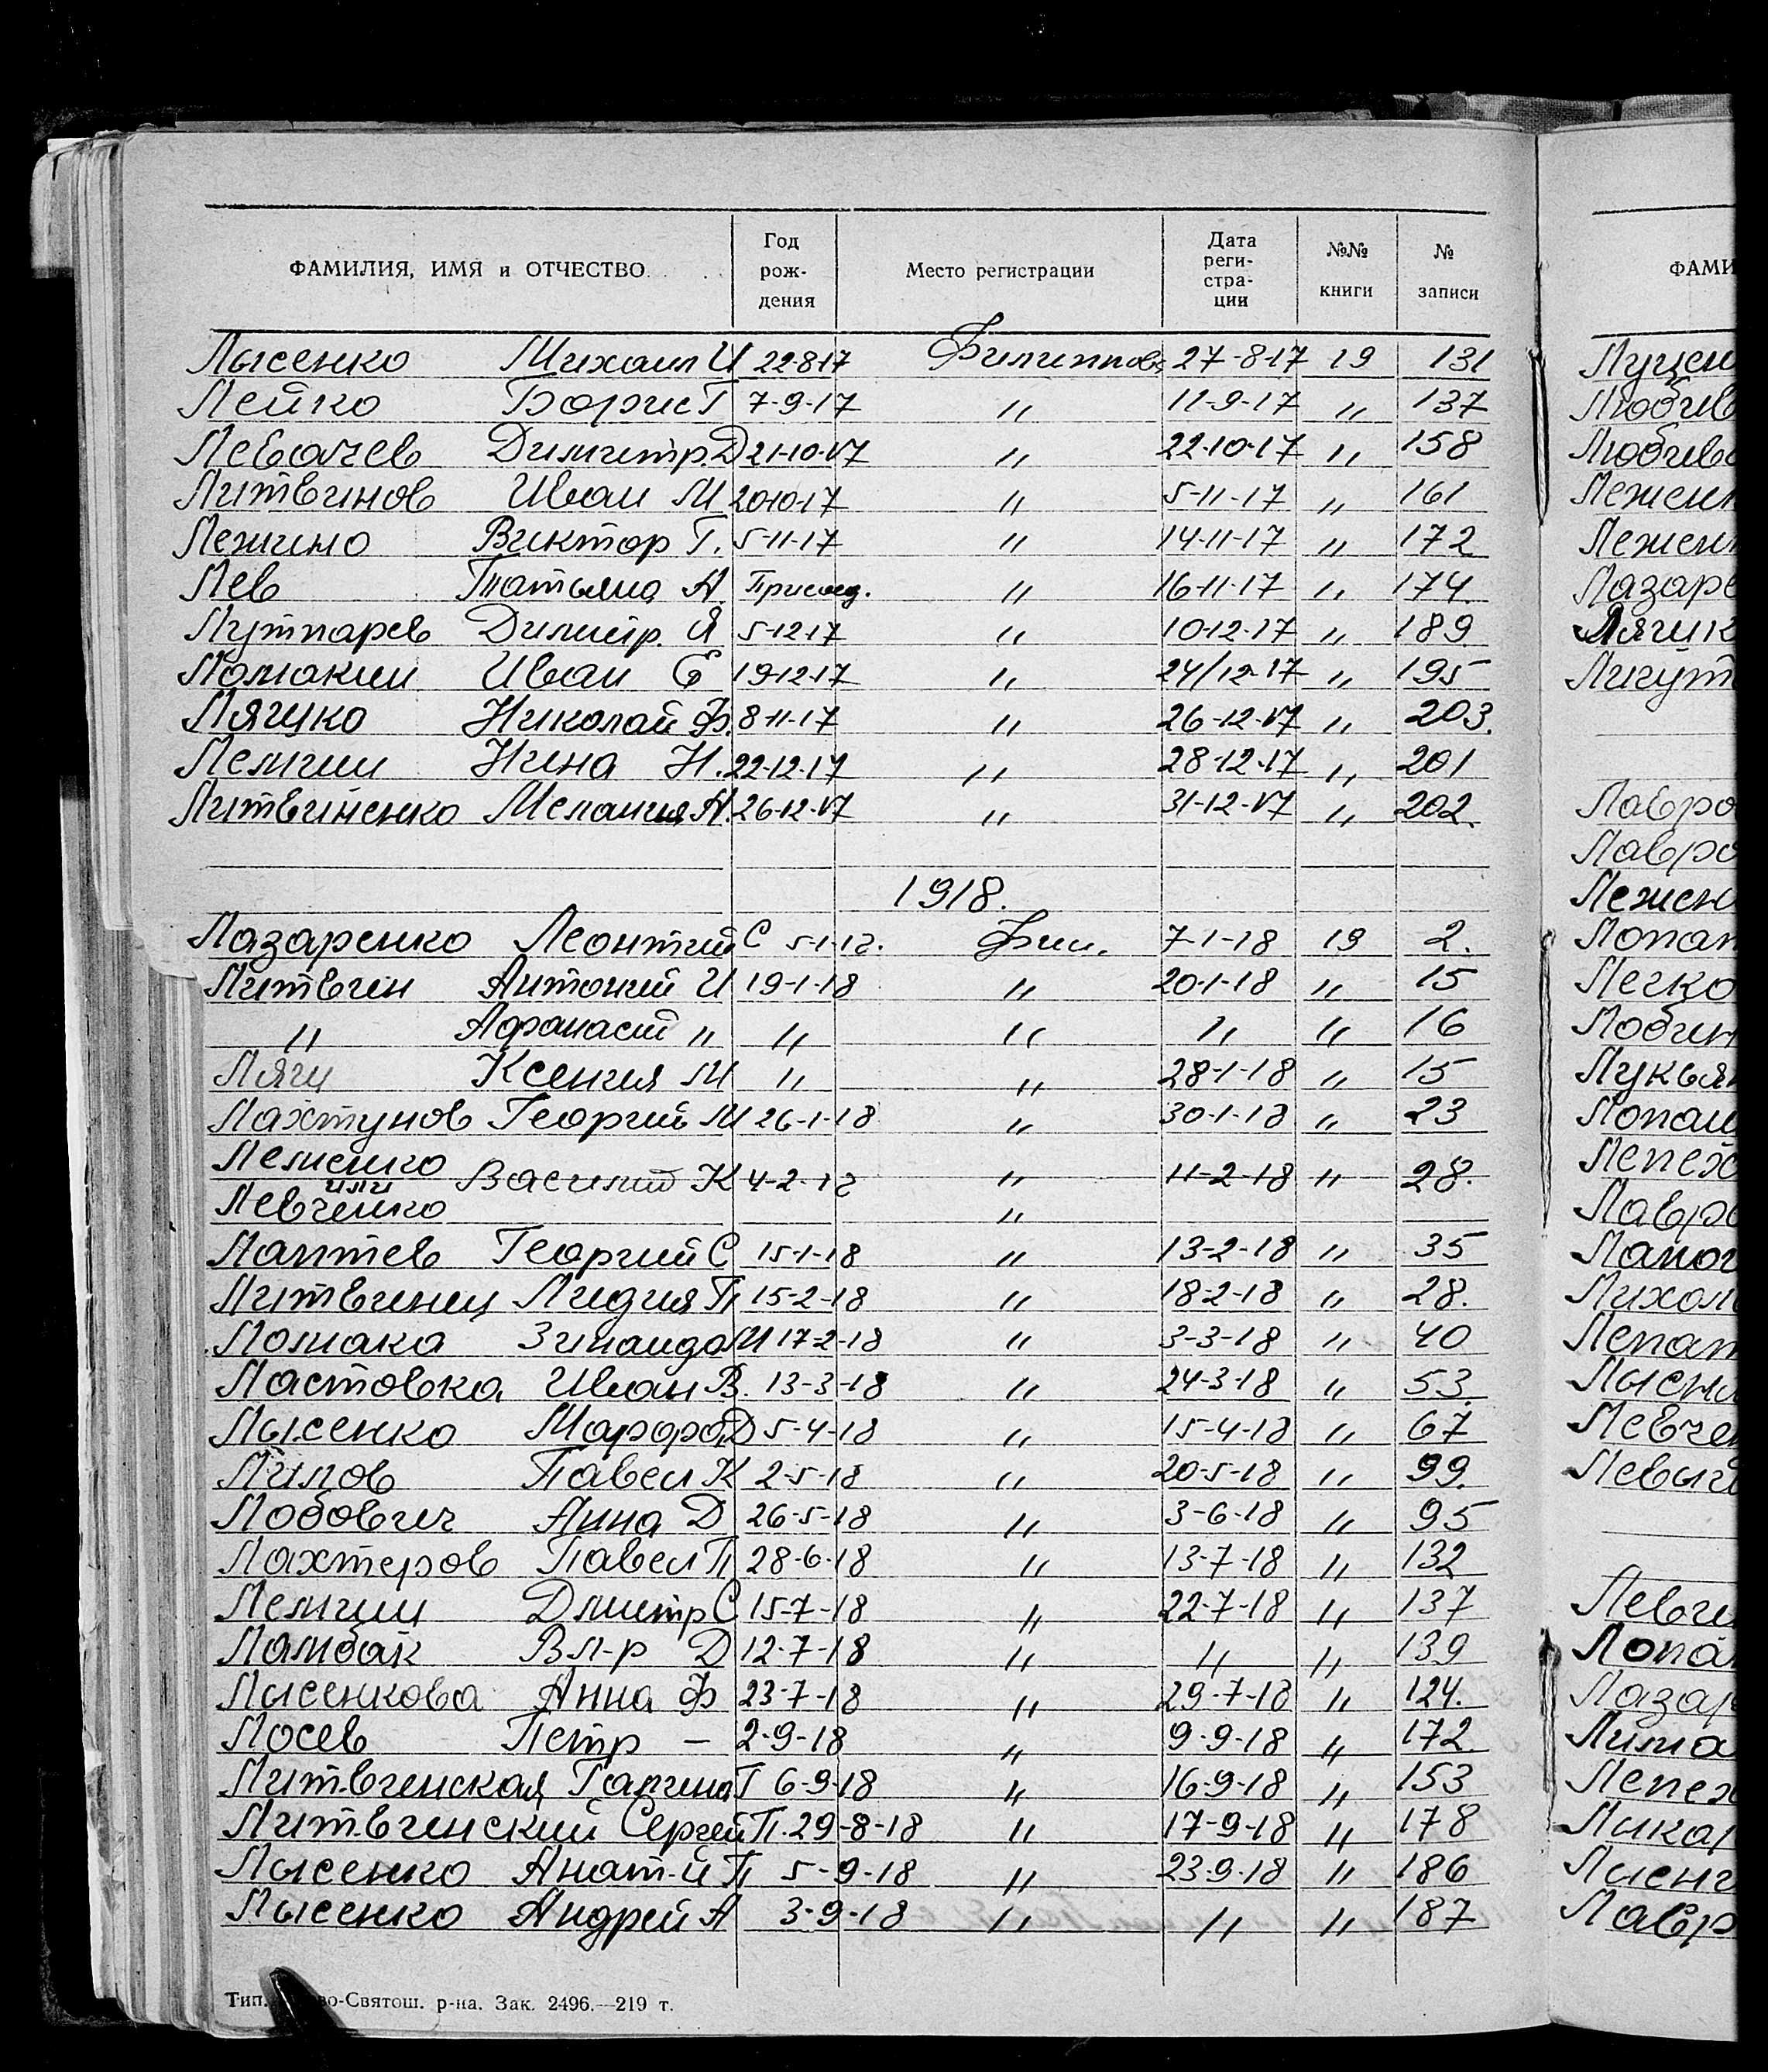 ФАМИЛИЯ, ИМЯ и ОТЧЕСТВО Год рож- дения Место регистрации Дата реги- стра- ции №№ книги № записи
Лысенко Михаил И 22-8-17 Филиппов. 27-8-17 19 131
Лейко Борис Г 7-9-17 " 11-9-17 " 137
Левачев Димитр. Д 21-10-17 " 22-10-17 " 158
Литвинов Иван М 20-10-17 " 5-11-17 " 161
Виктор Г. 5-11-17 " 14-11-17 " 172
Лев Татьяна А Присоед. " 16-11-17 " 174.
Лутпарев Димитр. Я 5-12-17 " 10-12-17 " 189
Ломакин Иван Е 19-12-17 " 24/12-17 " 195
Лягуко Николай Ф. 8-11-17 " 26-12-17 " 203.
Лемгин Нина Н. 22-12-17 " 28-12-17 " 201
Литвиненко Мелания А. 26-12-17 " 31-12-17 " 202.
1918.
Лазаренко Леонтий С 5-1-18. Фил. 7-1-18 19 2.
Литвин Антоний И 19-1-18 " 20-1-18 " 15
" Афанасий " " " " " 16
Лягу Ксения М " " 28-1-18 " 15
Лахтунов Георгий М 26-1-18 " 30-1-18 " 23
Лемешко
или Василий К 4-2-18 " 11-2-18 " 28.
Левченко "
Лаптев Георгий С 15-1-18 " 13-2-18 " 35
Литвинец Лидия П 15-2-18 " 18-2-18 " 28.
Ломака Зинаида М 17-2-18 " 3-3-18 " 40
Ластовка Иван В. 13-3-18 " 24-3-18 " 53.
Лысенко Марфа Д 5-4-18 " 15-4-18 " 67
Павел К 2-5-18 " 20-5-18 " 99.
Лобович Анна Д 26-5-18 " 3-6-18 " 95
Лахтеров Павел П 28-6-18 " 13-7-18 " 132
Лемгин Дмитр С 15-7-18 " 22-7-18 " 137
Ламбак Вл-р Д 12-7-18 " " " 139
Лысенкова Анна Ф 23-7-18 " 29-7-18 " 124.
Лосев Петр — 2-9-18 " 9-9-18 " 172
Литвинская Галина Г 6-9-18 " 16-9-18 " 153
Литвинский Сергей П. 29-8-18 " 17-9-18 " 178
Лысенко Анат-й П 5-9-18 " 23-9-18 " 186
Лысенко Андрей А 3-9-18 " " " 187
Тип. во-Святош. р-на. Зак. 2496.—219 т.
ФАМИ
Луцен
Любив
Любив
Лежен
Лежен
Лазаре
Лягик
Лигут
Лавро
Лавро
Лежен
Лопат
Легко
Лобин
Лукьян
Лопат
Лепех
Лавро
Лихом
Лепат
Лысен
Левче
Лопа
Лазар
Лима
Лепех
Ликар
Лавр